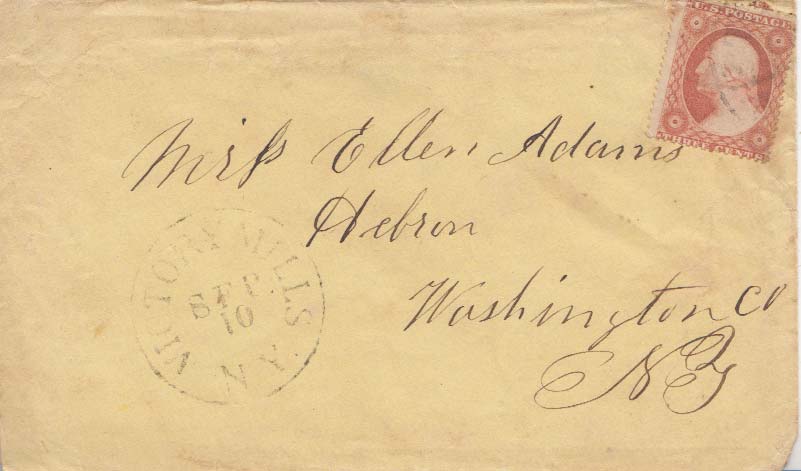 U.S. POSTAGE
THREE CENTS
Miss Ellen Adams
Hebron
Washington Co
NY
VICTORY MILLS N.Y.
SEP
10